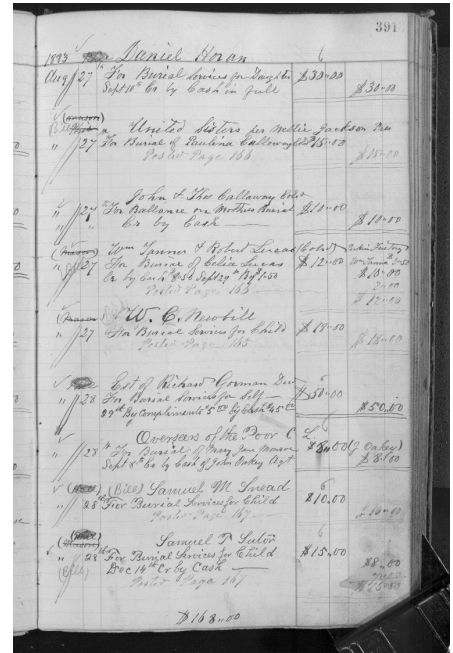 391
1893 Daniel Horan
Aug 27th For Burial Services for Daughter $30.00
Sept 11th Cr by Cash in full $30.00
United Sisters per Nellie Jackson Pres
" 27 For Burial of Paulina Calloway $15.00
Posted Page 166 $15.00
John & Thos Calloway Cold
" 27th For Ballance on Mothers Burial $10.00
" " Cr by Cash — $10.00
Wm Tanner & Robert Lucas (Cold)
" 27 For Burial of Celie Lucas $12.00
Cr by Cash Sept 29th $10.00
Posted Page 2.00
$12.00
W. C. Newbill
" 27 For Burial Services for Child $18.00
Posted Page 165 $18.00
Est of Richard Gorman Dec
" 28 For Burial Services for Self — $50.00
29th By Compliments 5.00 by Cash 45.00 $50.00
Overseers of the Poor C
" 28th For Burial of Mary Jane $3.00 (J Oakey)
Sept 8th Cr by Cash of John Oakey Agt $3.00
(Bill) Samuel M. Snead
" 28th For Burial Services for Child $10.00
Posted Page 167 $10.00
Samuel T. Sutor
" 28th For Burial Services for Child $15.00
(Bill) Dec 14th Cr. by Cash — $8.00
Posted Page 167
$15.00
$168.00